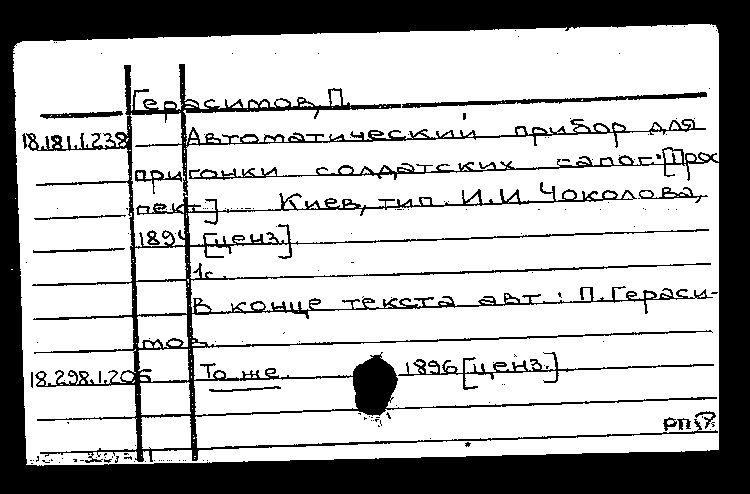 Герасимов, П.
18.181.1.238 Автоматический прибор для
пригонки солдатских сапог. [Прос
пект]. Киев, тип. И.И. Чоколова,
1894 [ценз.].
1с.
В конце текста авт.: П. Гераси-
мов.
18.298.1.206 То же. 1896 [ценз.].